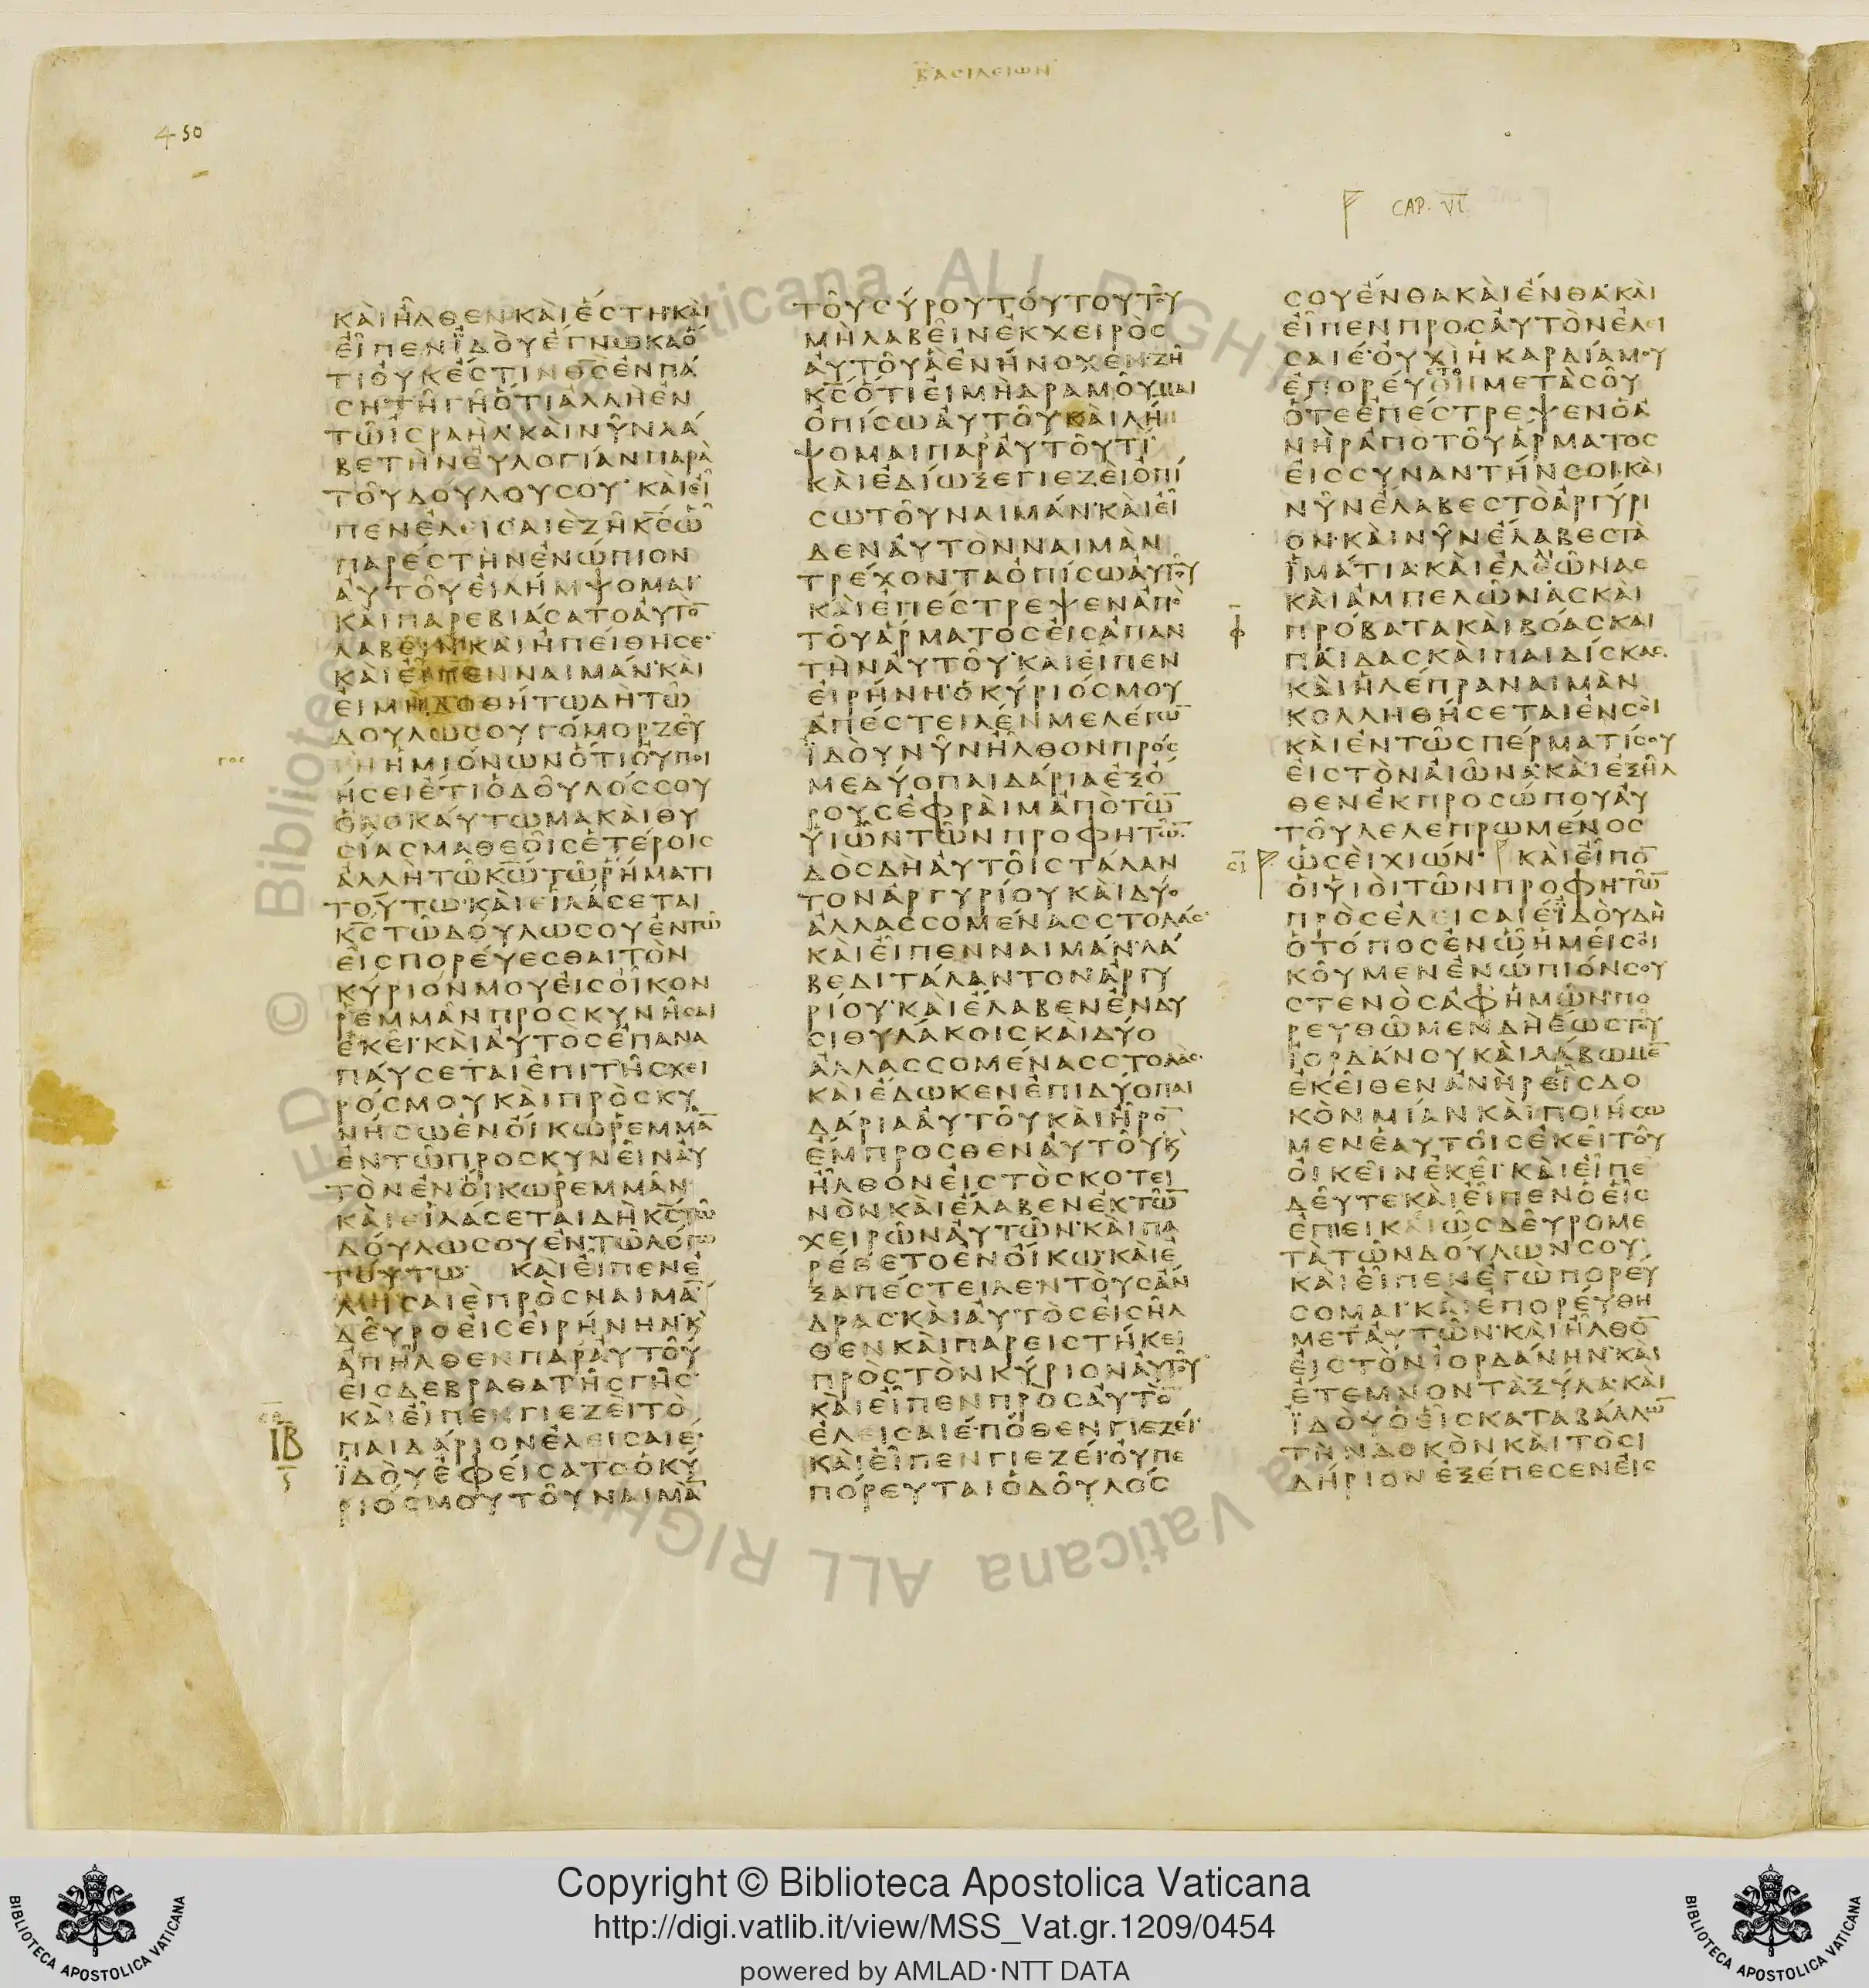 ΒΑΣΙΛΕΙΩΝ
450
CAP. VI
ΚΑῚΗ͂ΛΘΕΝΚΑῚΈΣΤΗ·ΚΑῚ
ΕἾΠΕΝΪΔΟῪἜΓΝΩΚΑὍ
ΤΙΟΥ̓ΚἜΣΤΙΝΘ̅Σ̅ἘΝΠΆ
ΣΗΤΗ͂ΓΗ͂ὍΤΙἈΛΛῊἘΝ
ΤΩ͂ΙΣΡΑΗΛ·ΚΑῚΝΥ͂ΝΛΆ
ΒΕΤῊΝΕΥ̓ΛΟΓΊΑΝΠΑΡᾺ
ΤΟΥ͂ΔΟΎΛΟΥΣΟΥ· ΚΑῚΕἾ
ΠΕΝἘΛΕΙΣΑΙΕΖΗ͂Κ̅Σ̅Ὧ
ΠΑΡΈΣΤΗΝἘΝΏΠΙΟΝ
ΑΥ̓ΤΟΥ͂ΕἸΛΉΜΨΟΜΑΙ·
ΚΑῚΠΑΡΕΒΙΆΣΑΤΟΑΥ̓ΤῸ̅
ΛΑΒΕΙ͂Ν·ΚΑῚἨΠΕΊΘΗΣΕ·
ΚΑῚΕἾΠΕΝΝΑΙΜΆΝ·ΚΑῚ
ΕἸΜῊΔΟΘΉΤΩΔῊΤΩ͂
ΔΟΎΛΩΣΟΥΓΌΜΟΡΖΕΥ͂
ΓΗἩΜΙΌΝΩΝὍΤΙΟΥ̓ΠΟΙ
ΉΣΕΙἜΤΙὉΔΟΥ͂ΛΌΣΣΟΥ
ὉΛΟΚΑΎΤΩΜΑΚΑῚΘΥ
ΣΊΑΣΜΑΘΕΟΙ͂ΣἙΤΈΡΟΙΣ
ἈΛΛῊΤΩ͂Κ̅Ω̅ΤΩ͂ῬΉΜΑΤΙ
ΤΟΎΤΩ·ΚΑῚΕἹΛΆΣΕΤΑΙ
Κ̅Σ̅ΤΩ͂ΔΟΎΛΩΣΟΥἘΝΤΩ͂
ΕἸΣΠΟΡΕΎΕΣΘΑΙΤῸΝ
ΚΎΡΙΌΝΜΟΥΕἸΣΟἾΚΟΝ
ῬΕΜΜᾺΝΠΡΟΣΚΥΝΗ͂ΣΑΙ
ἘΚΕΙ͂·ΚΑῚΑΥ̓ΤῸΣἘΠΑΝΑ
ΠΑΎΣΕΤΑΙἘΠῚΤΗ͂ΣΧΕΙ
ΡΌΣΜΟΥΚΑῚΠΡῸΣΚΥ
ΝΉΣΩἘΝΟἼΚΩῬΕΜΜᾺ̅
ἘΝΤΩ͂ΠΡΟΣΚΥΝΕΙ͂ΝΑΥ̓
ΤῸΝἘΝΟἼΚΩῬΕΜΜᾺΝ
ΚΑῚΕἹΛΆΣΕΤΑΙΔῊΚ̅Σ̅ΤΩ͂
ΔΟΎΛΩΣΟΥἘΝΤΩ͂ΛΌΓΩ
ΤΟΎΤΩ· ΚΑῚΕἾΠΕΝἘ
ΛΕΙΣΑΙΕΠΡῸΣΝΑΙΜΆ̅·
ΔΕΥ͂ΡΟΕἸΣΕἸΡΉΝΗΝ·Κ̀
ἈΠΗ͂ΛΘΕΝΠΑΡΑΥ̓ΤΟΥ͂
ΕἸΣΔΕΒΡΑΘΑΤΗ͂ΣΓΗ͂Σ·
ΚΑῚΕἾΠΕΝΓΙΕΖΕῚΤῸ
ΠΑΙΔΆΡΙΟΝἘΛΕΙΣΑΙΕ·
ΪΔΟῪἘΦΕΊΣΑΤΟὉΚΎ
ΡΙΌΣΜΟΥΤΟΥ͂ΝΑΙΜᾺ̅
ΙΒ
ΤΟΥ͂ΣΎΡΟΥΤΟΎΤΟΥΤΟΥ͂
ΜῊΛΑΒΕΙ͂ΝἘΚΧΕΙΡῸΣ
ΑΥ̓ΤΟΥ͂ἋἘΝΉΝΟΧΕΝ·ΖΗ͂
Κ̅Σ̅ὍΤΙΕἸΜῊΔΡΑΜΟΥ͂ΜΑΙ
ὈΠΊΣΩΑΥ̓ΤΟΥ͂ΚΑῚΛΉ
ΨΟΜΑΙΠΑΡΑΥ̓ΤΟΥ͂ΤΙ·
ΚΑῚἘΔΊΩΞΕΓΙΕΖΕῚὈΠΊ
ΣΩΤΟΥ͂ΝΑΙΜΆΝ·ΚΑῚΕἾ
ΔΕΝΑΥ̓ΤῸΝΝΑΙΜᾺΝ
ΤΡΈΧΟΝΤΑὈΠΊΣΩΑΥ̓ΤΟΥ͂
ΚΑῚἘΠΈΣΤΡΕΨΕΝἈΠῸ
ΤΟΥ͂ἍΡΜΑΤΟΣΕἸΣἈΠΑΝ
ΤῊΝΑΥ̓ΤΟΥ͂·ΚΑῚΕἾΠΕΝ
ΕἸΡΉΝΗ·ὉΚΎΡΙΌΣΜΟΥ
ἈΠΈΣΤΕΙΛΈΝΜΕΛΈΓΩ̅
ΪΔΟῪΝΥ͂ΝΗ͂ΛΘΟΝΠΡΌΣ
ΜΕΔΎΟΠΑΙΔΆΡΙΑἘΞὌ
ΡΟΥΣἘΦΡΑῚΜἈΠῸΤΩ͂̅
ΥἹΩ͂ΝΤΩ͂ΝΠΡΟΦΗΤΩ͂̅·
ΔῸΣΔῊΑΥ̓ΤΟΙ͂ΣΤΆΛΑΝ
ΤΟΝἈΡΓΥΡΊΟΥΚΑῚΔΎΟ
ἈΛΛΑΣΣΟΜΈΝΑΣΣΤΟΛΆΣ·
ΚΑῚΕἾΠΕΝΝΑΙΜΆΝ·ΛΑ
ΒΕΔΙΤΆΛΑΝΤΟΝἈΡΓΥ
ΡΊΟΥ·ΚΑῚἜΛΑΒΕΝἘΝΔΥ
ΣῚΘΥΛΆΚΟΙΣΚΑῚΔΎΟ
ἈΛΛΑΣΣΟΜΈΝΑΣΣΤΟΛΆΣ·
ΚΑῚἜΔΩΚΕΝἘΠῚΔΎΟΠΑΙ
ΔΆΡΙΑΑΥ̓ΤΟΥ͂ΚΑῚΗ͂ΡΟ̅
ἜΜΠΡΟΣΘΕΝΑΥ̓ΤΟΥ͂Κ̀
Η͂ΛΘΟΝΕἸΣΤῸΣΚΟΤΕΙ
ΝῸΝΚΑῚἜΛΑΒΕΝἘΚΤΩ͂̅
ΧΕΙΡΩ͂ΝΑΥ̓ΤΩ͂Ν·ΚΑῚΠΑ
ΡΈΘΕΤΟἘΝΟἼΚΩ·ΚΑῚἘ
ΞΑΠΈΣΤΕΙΛΕΝΤΟῪΣἌΝ
ΔΡΑΣ·ΚΑῚΑΥ̓ΤῸΣΕἸΣΗ͂Λ
ΘΕΝΚΑῚΠΑΡΕΙΣΤΉΚΕΙ
ΠΡῸΣΤῸΝΚΎΡΙΟΝΑΥ̓ΤΟΥ͂·
ΚΑῚΕἾΠΕΝΠΡῸΣΑΥ̓ΤῸ̅
ἘΛΕΙΣΑΙΈ·ΠΌΘΕΝΓΙΕΖΕΊ·
ΚΑῚΕἾΠΕΝΓΙΕΖΕΊ·ΟΥ̓ΠΕ
ΠΌΡΕΥΤΑΙὉΔΟΥ͂ΛΌΣ
ΣΟΥἜΝΘΑΚΑῚἜΝΘΑ·ΚΑῚ
ΕἾΠΕΝΠΡῸΣΑΥ̓ΤῸΝἘΛΕΙ
ΣΑΙΈ·ΟΥ̓ΧῚἩΚΑΡΔΊΑΜΟΥ
ἘΠΟΡΕΎΘΗΜΕΤᾺΣΟΥ͂
ὍΤΕἘΠΈΣΤΡΕΨΕΝὉΑ
ΝῊΡἈΠῸΤΟΥ͂ἍΡΜΑΤΟΣ
ΕἸΣΣΥΝΑΝΤΉΝΣΟΙ·ΚΑῚ
ΝΥ͂ΝἜΛΑΒΕΣΤῸἈΡΓΎΡΙ
ΟΝ·ΚΑῚΝΥ͂ΝἜΛΑΒΕΣΤᾺ
ἹΜΆΤΙΑ·ΚΑῚἘΛΑΙΩ͂ΝΑΣ
ΚΑῚἈΜΠΕΛΩ͂ΝΑΣΚΑῚ
ΠΡΌΒΑΤΑΚΑῚΒΌΑΣΚΑῚ
ΠΑΙ͂ΔΑΣΚΑῚΠΑΙΔΊΣΚΑΣ·
ΚΑῚἩΛΈΠΡΑΝΑΙΜᾺΝ
ΚΟΛΛΗΘΉΣΕΤΑΙἘΝΣΟῚ
ΚΑῚἘΝΤΩ͂ΣΠΈΡΜΑΤΊΣΟΥ
ΕἸΣΤῸΝΑἸΩ͂ΝΑ·ΚΑῚἘΞΗ͂Λ
ΘΕΝἘΚΠΡΟΣΏΠΟΥΑΥ̓
ΤΟΥ͂ΛΕΛΕΠΡΩΜΈΝΟΣ
ὩΣΕῚΧΙΏΝ· ΚΑῚΕἾΠΟ̅
ΟἹΥἹΟῚΤΩ͂ΝΠΡΟΦΗΤΩ͂̅
ΠΡῸΣἘΛΕΙΣΑΙΈΪΔΟῪΔῊ
ὉΤΌΠΟΣἘΝΩ͂ἩΜΕΙ͂ΣΟἸ
ΚΟΥ͂ΜΕΝἘΝΏΠΙΌΝΣΟΥ
ΣΤΕΝῸΣἈΦἩΜΩ͂Ν·ΠΟ
ΡΕΥΘΩ͂ΜΕΝΔῊἝΩΣΤΟΥ͂
ἸΟΡΔΆΝΟΥΚΑῚΛΆΒΩΜΕ̅
ἘΚΕΙ͂ΘΕΝἈΝῊΡΕἿΣΔΟ
ΚῸΝΜΊΑΝΚΑῚΠΟΙΉΣΩ
ΜΕΝἙΑΥΤΟΙ͂ΣἘΚΕΙ͂ΤΟΥ͂
ΟἸΚΕΙ͂ΝἘΚΕΙ͂·ΚΑῚΕἾΠΕ̅
ΔΕΥ͂ΤΕ·ΚΑῚΕἾΠΕΝὉΕἿΣ
ἘΠΙΕΙΚΑΙΩ͂ΣΔΕΥ͂ΡΟΜΕ
ΤᾺΤΩ͂ΝΔΟΎΛΩΝΣΟΥ·
ΚΑῚΕἾΠΕΝἘΓῺΠΟΡΕΎ
ΣΟΜΑΙ·ΚΑῚἘΠΟΡΕΎΘΗ
ΜΕΤΑΥ̓ΤΩ͂Ν·ΚΑῚΗ͂ΛΘΟ̅
ΕἸΣΤῸΝἸΟΡΔΆΝΗΝ·ΚΑῚ
ἜΤΕΜΝΟΝΤᾺΞΎΛΑ·ΚΑῚ
ΪΔΟῪὉΕἿΣΚΑΤΑΒΆΛΛΩ̅
ΤῊΝΔΟΚῸΝΚΑῚΤῸΣΙ
ΔΉΡΙΟΝἘΞΈΠΕΣΕΝΕἸΣ
Copyright © Biblioteca Apostolica Vaticana
http://digi.vatlib.it/view/MSS_Vat.gr.1209/0454
powered by AMLAD·NTT DATA
BIBLIOTECA APOSTOLICA VATICANA
BIBLIOTECA APOSTOLICA VATICANA